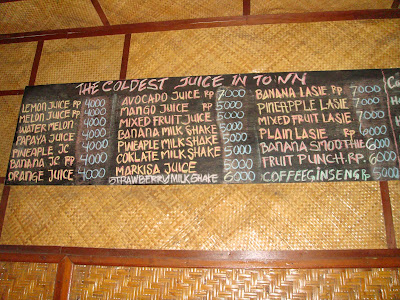 THE COLDEST JUICE IN TOWN
LEMON JUICE Rp 4000
MELON JUICE Rp 4000
WATER MELON 4000
PAPAYA JUICE 4000
PINEAPLE JC 4000
BANANA JC Rp 4000
ORANGE JUICE 4000
AVOCADO JUICE Rp 7000
MANGO JUICE Rp 5000
MIXED FRUIT JUICE 5000
BANANA MILK SHAKE 5000
PINEAPLE MILKSHAKE 5000
COKLATE MILK SHAKE 5000
MARKISA JUICE 5000
STRAWBERRY MILKSHAKE 6000
BANANA LASIE Rp 7000
PINEAPPLE LASIE 7000
MIXED FRUIT LASIE
PLAIN LASIE Rp 6000
BANANA SMOOTHIE 6000
FRUIT PUNCH.RP. 6000
COFFEEGINSENG Rp 5000